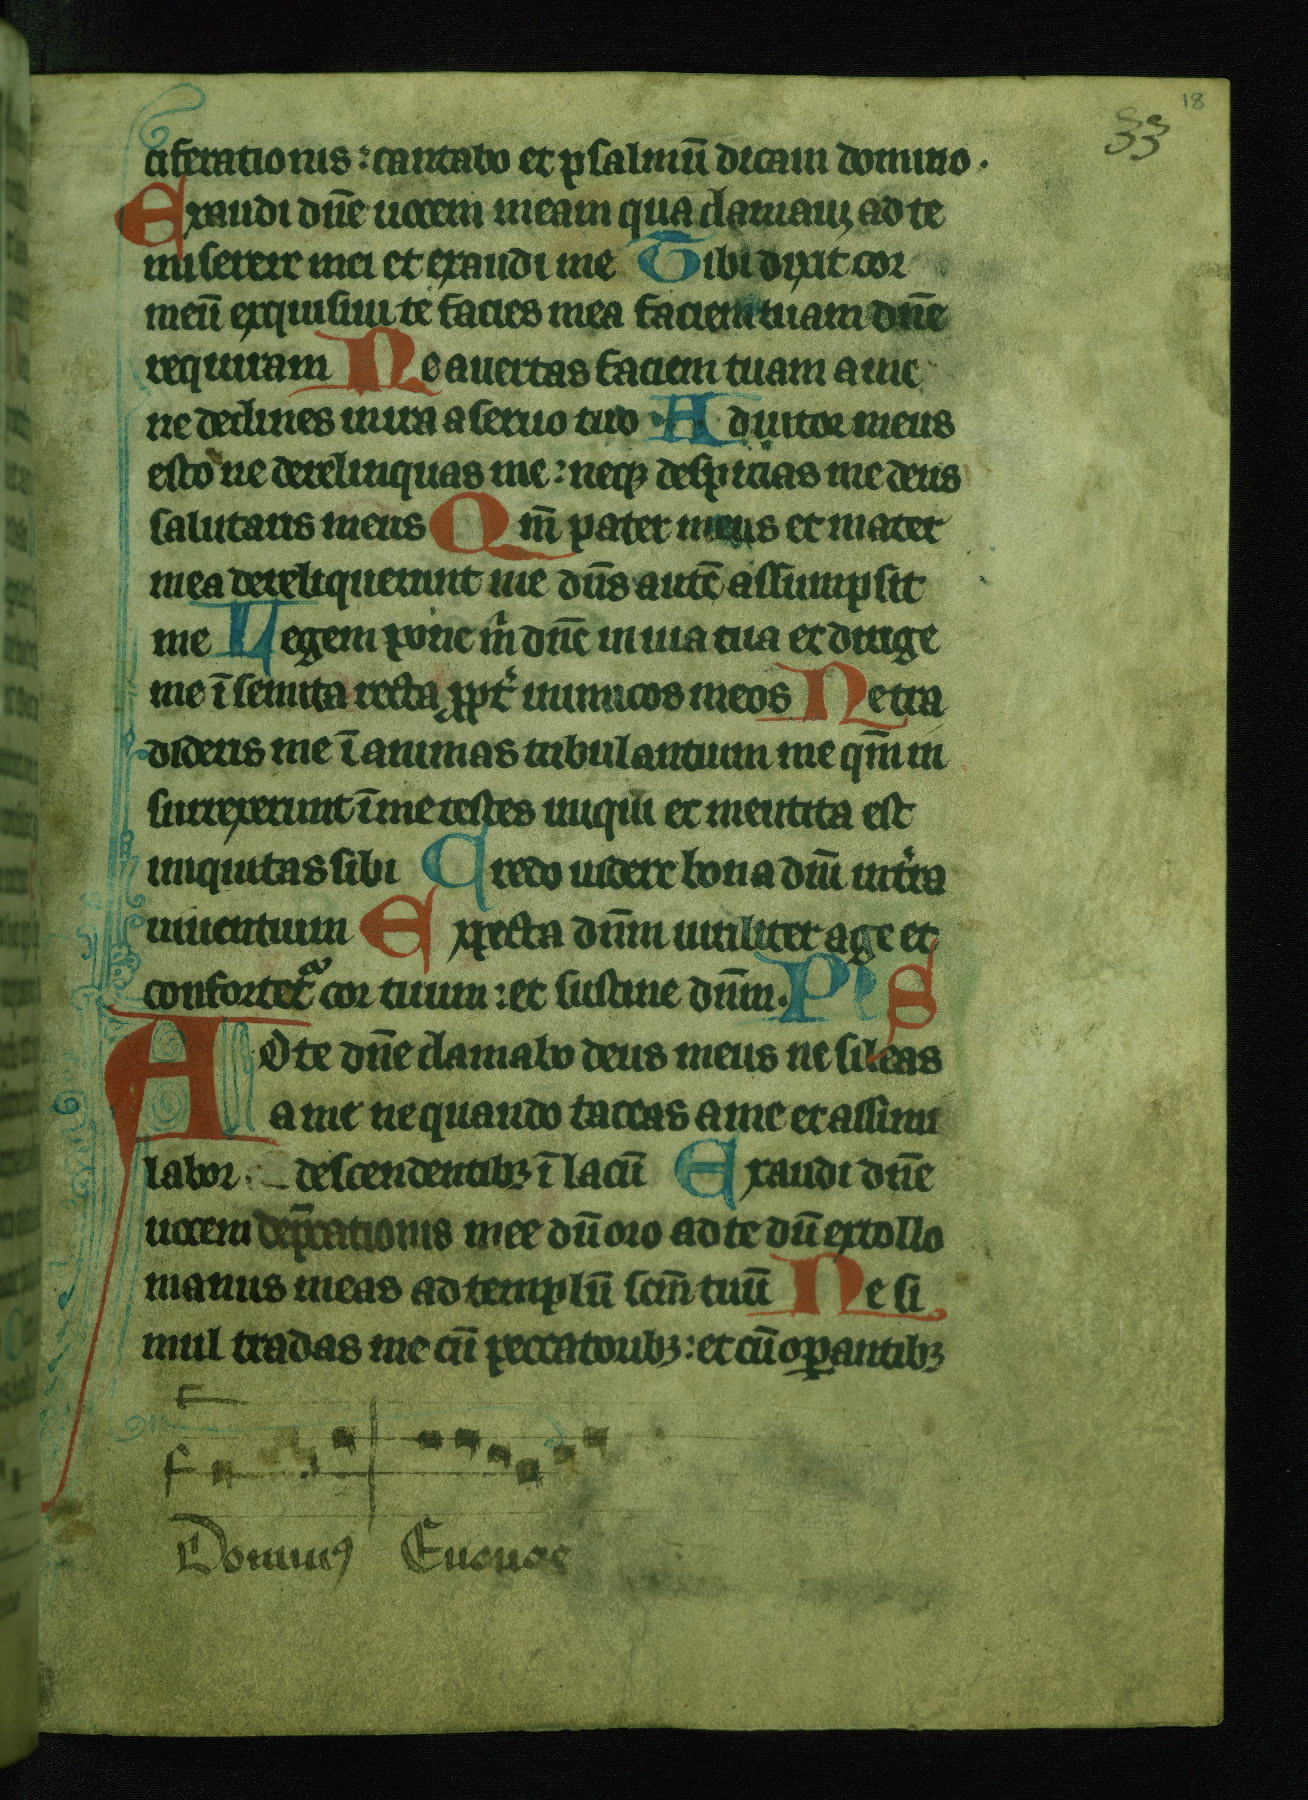 18
33
ciferationis : cantabo et psalmū dicam domino .
Exaudi dn̄e uocem meam qua clamauꝫ ad te
miserere mei et exaudi me Tibi dixit cor
meū exquisiuit te facies mea faciem tuam dn̄e
requiram Ne auertas faciem tuam a me
ne declines in ira a seruo tuo Adiutor meus
esto ne derelinquas me : neqꝫ despicias me deus
salutaris meus Qm̄ pater meus et mater
mea dereliquerunt me dn̄s autē assumpsit
me Legem pone m̄ dn̄e in uia tua et dirige
me ī semita recta ppt̄ inimicos meos Ne tra
dideris me ī animas tribulantium me qm̄ in
surrexerunt ī me testes iniqui et mentita est
iniquitas sibi Credo uidere bona dn̄i in t̄ra
uiuentium Expecta dn̄m uiriliter age et
confortet̄ cor tuum : et sustine dn̄m . Ps
AD te dn̄e clamabo deus meus ne sileas
a me ne quando taceas a me et assimi
labor descendentibꝫ ī lacū Exaudi dn̄e
uocem dep̄cationis mee dū oro ad te dū extollo
manus meas ad templū scm̄ tuū Ne si
mul tradas me cū peccatoribꝫ : et cū oꝑantibꝫ
Dominꝰ Euouae